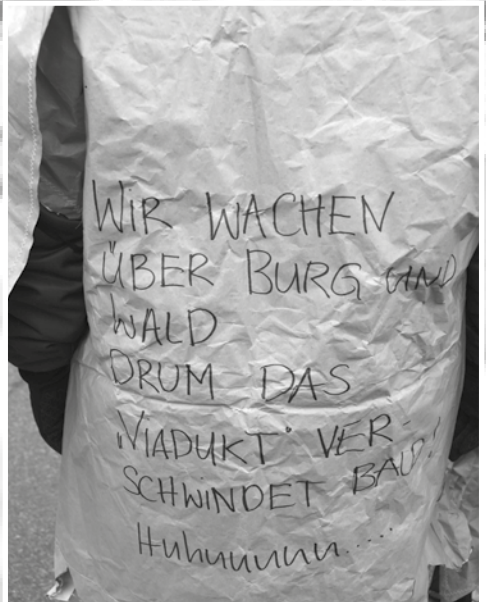 WIR WACHEN
ÜBER BURG UND
WALD
DRUM DAS
„VIADUKT" VER-
SCHWINDET BALD!
Huhuuuuuu.....